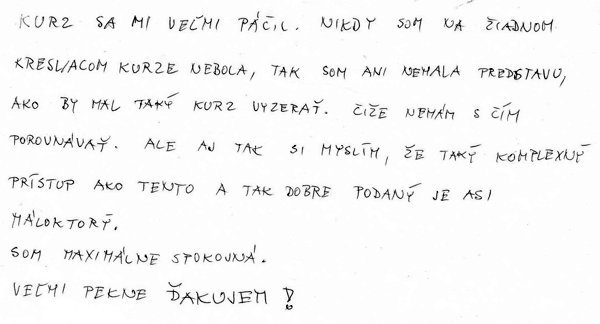 KURZ SA MI VEĽMI PÁČIL. NIKDY SOM NA ŽIADNOM
KRESLIACOM KURZE NEBOLA, TAK SOM ANI NEMALA PREDSTAVU,
AKO BY MAL TAKÝ KURZ VYZERAŤ. ČIŽE NEMÁM S ČÍM
POROVNÁVAŤ. ALE AJ TAK SI MYSLÍM, ŽE TAKÝ KOMPLEXNÝ
PRÍSTUP AKO TENTO A TAK DOBRE PODANÝ JE ASI
MÁLOKTORÝ.
SOM MAXIMÁLNE SPOKOJNÁ.
VEĽMI PEKNE ĎAKUJEM!